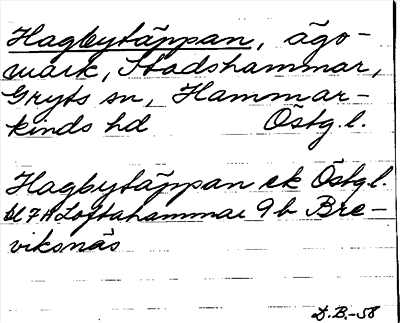 Hagbytäppan, ägo-
mark, Stadshammar,
Gryts sn, Hammar-
kinds hd Östg.l.
Hagbytäppan ek Östg.l.
bl 7H Loftahammar 9b Bre-
viksnäs
D.B.-58